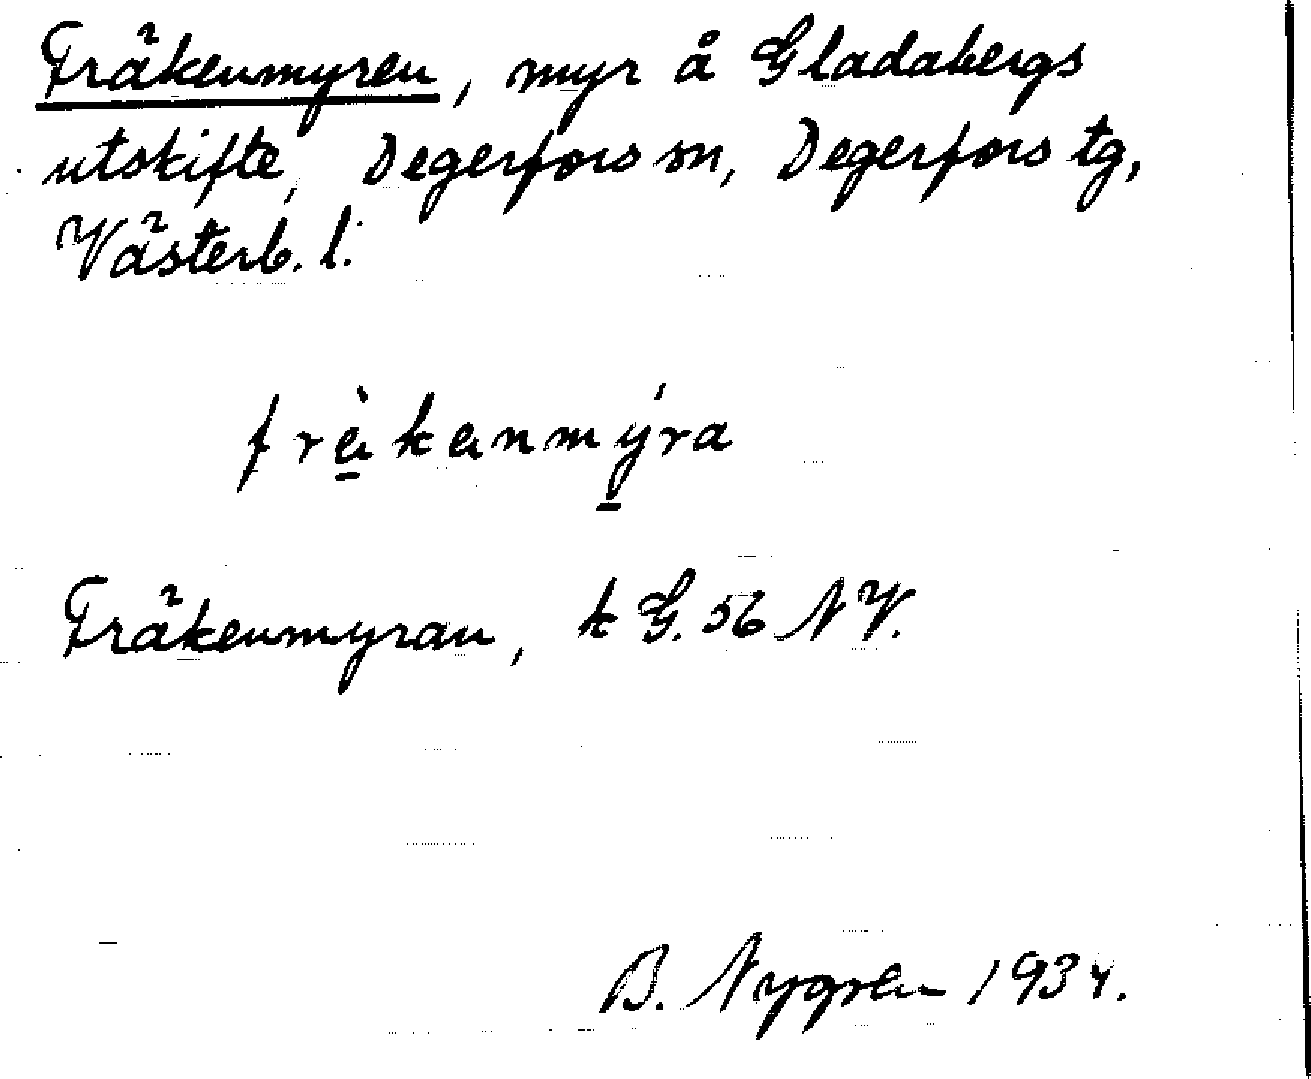 Fräkenmyren, myr å Gladabergs
utskifte, Degerfors sn, Degerfors tg,
Västerb. l.
frä̀kanmýra
Fräkenmyran, k G. 56 NV.
B. Nygren 1934.